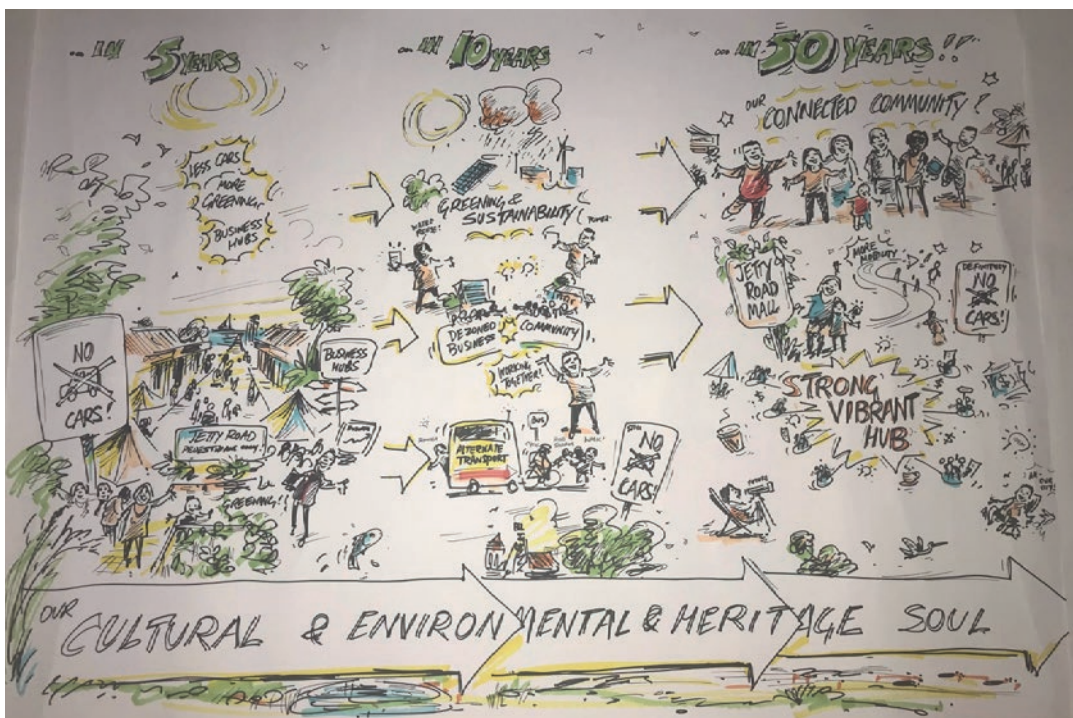 ... IN 5 YEARS
LESS CARS
MORE
GREENING,
BUSINESS
HUBS
NO
CARS!
BUSINESS
HUBS
JETTY ROAD
PEDESTRIANS ONLY!
GREENING!!
... IN 10 YEARS
GREENING &
SUSTAINABILITY
POWER!
WATER
REUSE!
DEZONED
BUSINESS
COMMUNITY
WORKING
TOGETHER!
ALTERNATE
TRANSPORT
BUS
STILL
NO
CARS!
... IN 50 YEARS!!
OUR
CONNECTED COMMUNITY!
JETTY
ROAD
MALL
MORE
MOBILITY
DEFINITELY
NO
CARS!
STRONG
VIBRANT
HUB
OUR
CULTURAL & ENVIRONMENTAL & HERITAGE SOUL